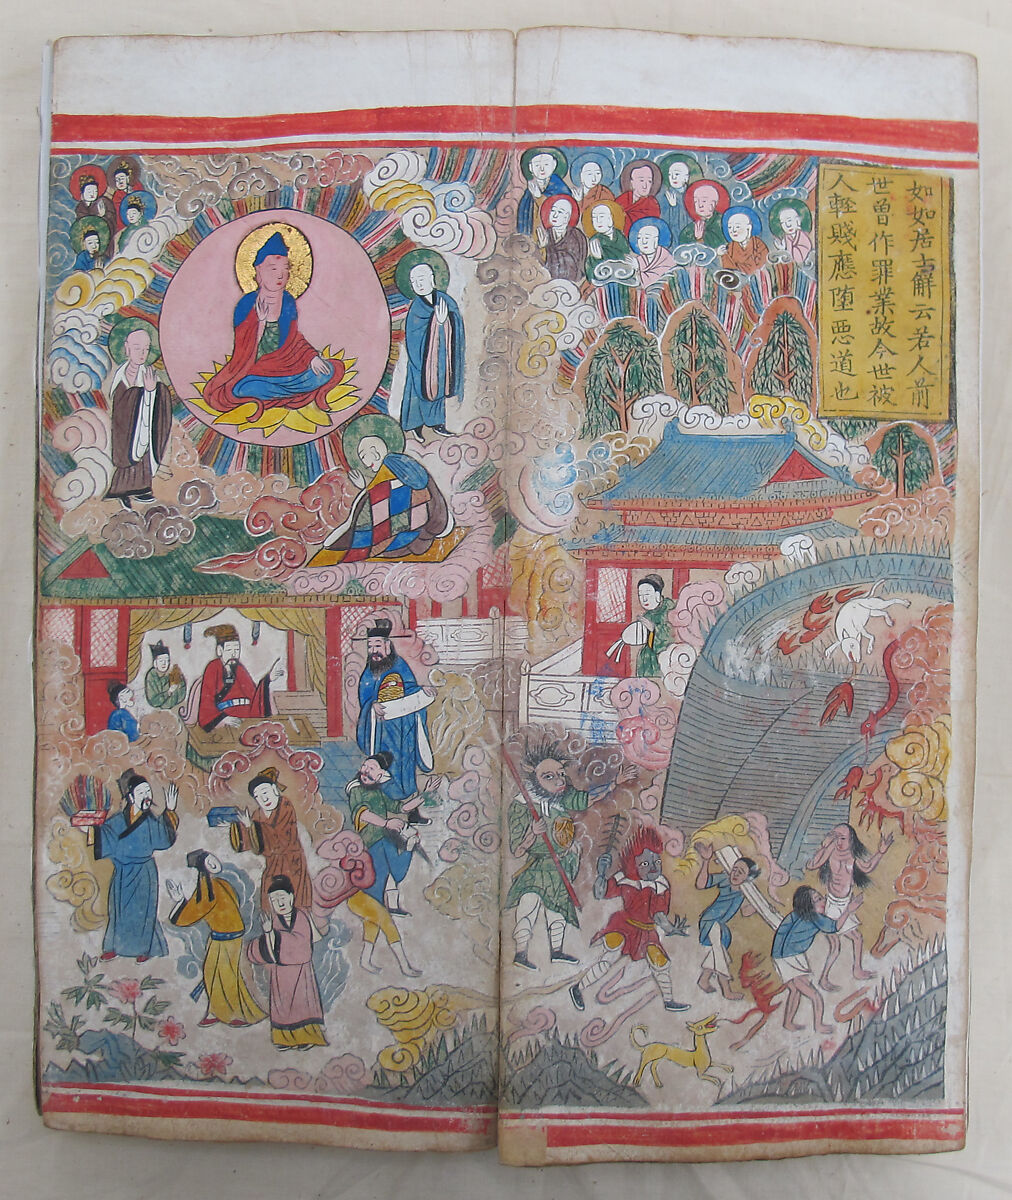 如如居士辭云若人前
世曾作罪業故今世被
人輕賤應堕惡道也